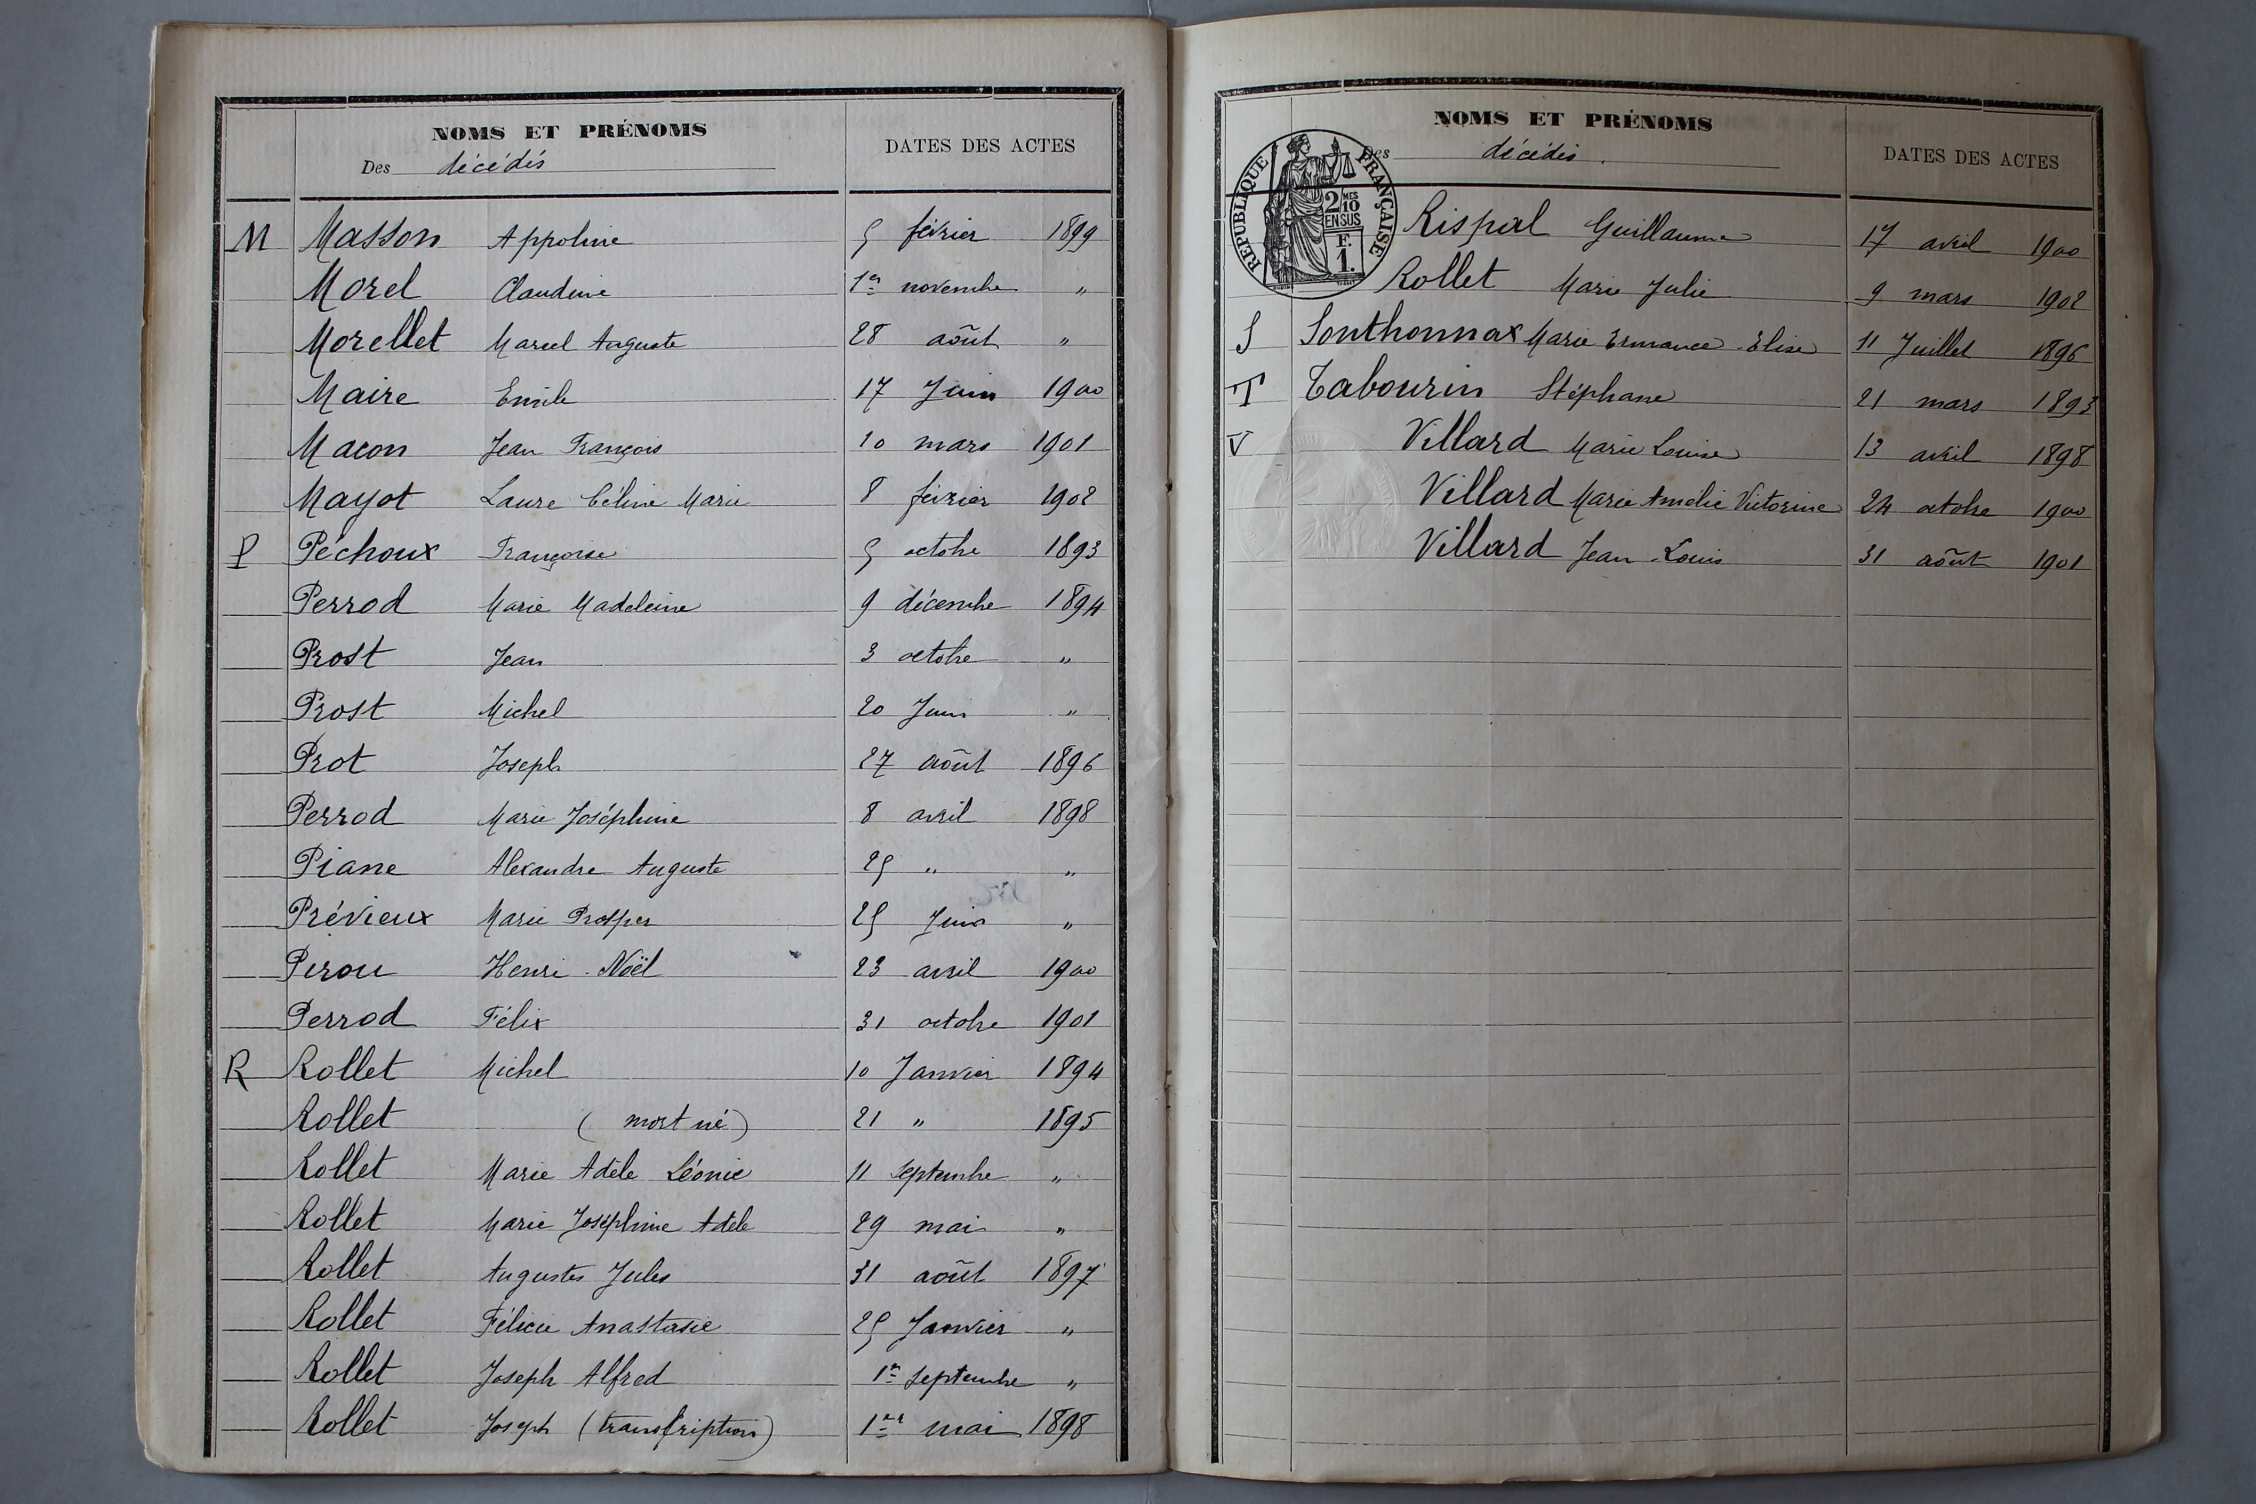 NOMS ET PRÉNOMS
Des décédés
DATES DES ACTES
M Masson Appoline 5 février 1899
Morel Claudine 1er novembre "
Morellet Marcel Auguste 28 août "
Maire Emile 17 Juin 1900
Macon Jean François 10 mars 1901
Mayot Laure Céline Marie 8 février 1902
P Péchoux Françoise 5 octobre 1893
Perrod Marie Madeleine 9 décembre 1894
Prost Jean 3 octobre "
Prost Michel 20 Juin "
Prot Joseph 27 août 1896
Perrod Marie Joséphine 8 avril 1898
Piane Alexandre Auguste 25 " "
Prévieux Marie Prosper 25 Juin "
Pirou Henri Noël 23 avril 1900
Perrod Félix 31 octobre 1901
R Rollet Michel 10 Janvier 1894
Rollet (mort né) 21 " 1895
Rollet Marie Adèle Léonie 11 septembre "
Rollet Marie Joséphine Adèle 29 mai "
Rollet Augustes Jules 31 août 1897
Rollet Félicie Anastasie 25 Janvier "
Rollet Joseph Alfred 1er septembre "
Rollet Joseph (transcription) 1er mai 1898
NOMS ET PRÉNOMS
Des décédés.
DATES DES ACTES
RÉPUBLIQUE FRANÇAISE
2 MES
10
EN SUS
F.
1.
Rispal Guillaume 17 avril 1900
Rollet Marie Julie 9 mars 1902
S Sonthonnax Marie Ermance Elise 11 Juillet 1896
T Tabourin Stéphane 21 mars 1893
V Villard Marie Louise 13 avril 1898
Villard Marie Amélie Victorine 24 octobre 1900
Villard Jean Louis 31 août 1901